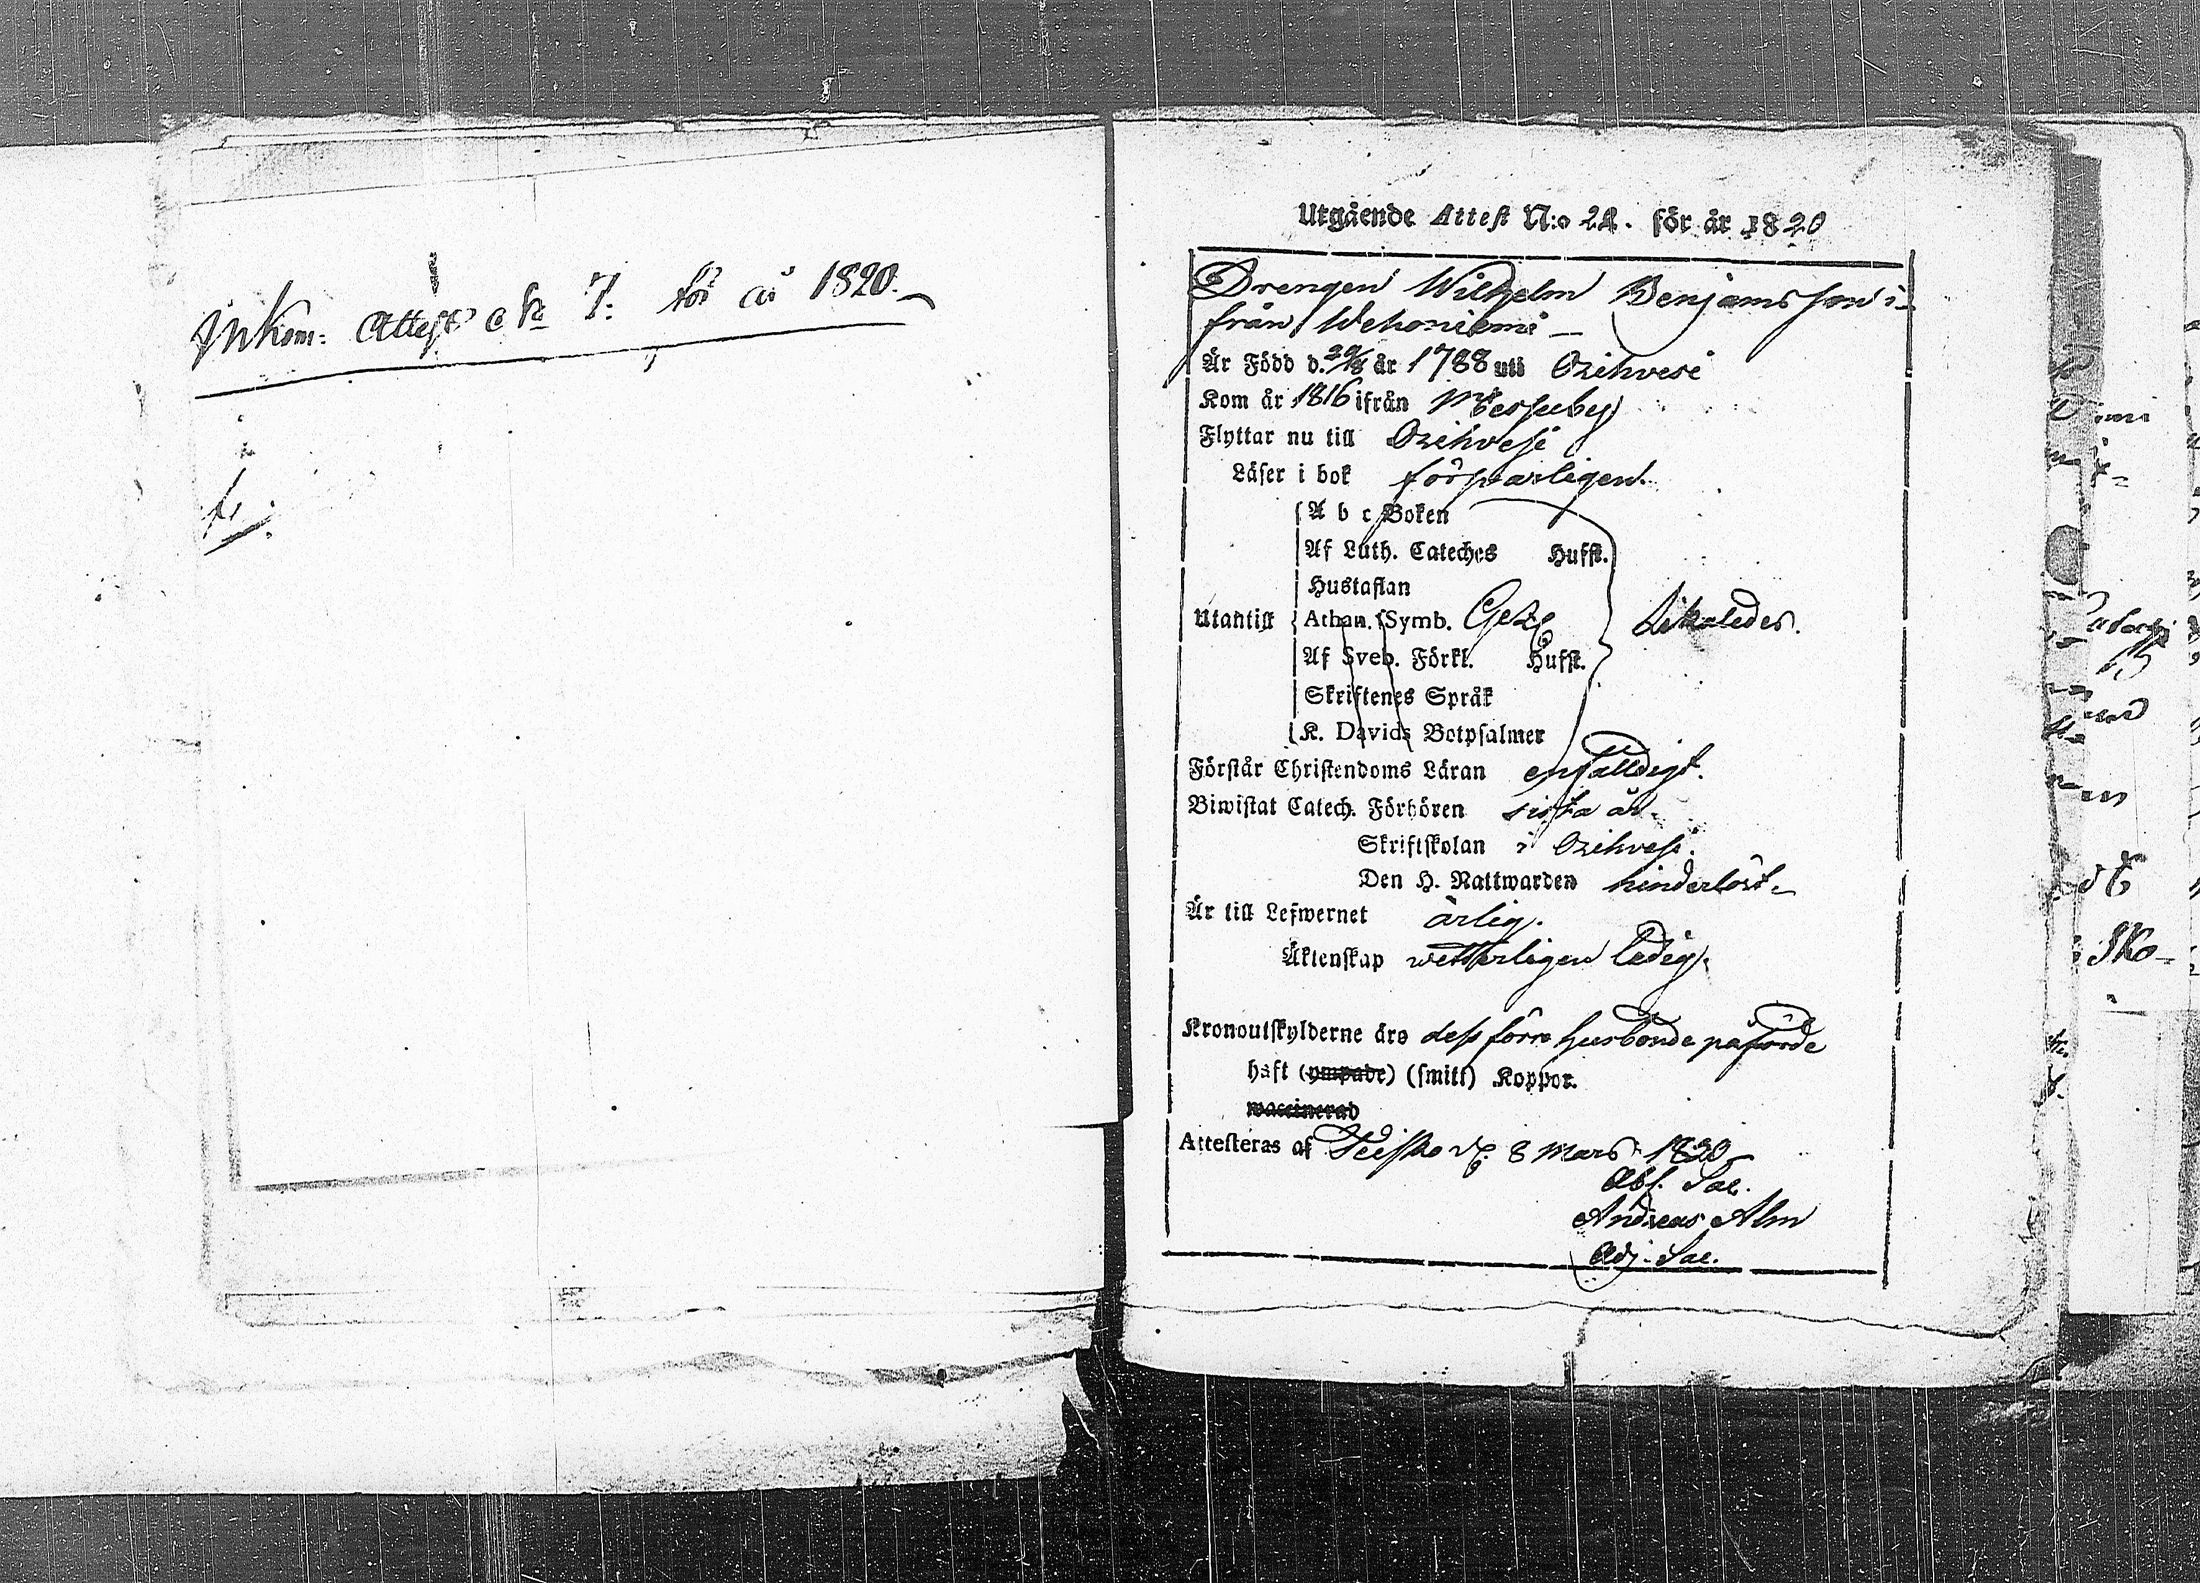 Inkom: Attest No 7. för år 1820.
Utgående Attest N:o 24. för år 1820
Drengen Wilhelm Benjamsson i-
från Wehoniemi
Är Född d. 29/8 år 1788 uti Orihvesi
Kom år 1816 ifrån Messuby
Flyttar nu till Orihvesi
Läser i bok förswarligen.
A b c Boken
Af Luth. Cateches Hufst.
Hustaflan
Utantill Athan. Symb. Likaledes.
Af Sveb. Förkl. Hufst.
Skriftenes Språk
K. Davids Botpsalmer
Förstår Christendoms Läran enfalldigt.
Biwistat Catech. Förhören sista år.
Skriftskolan i Orihvesi.
Den H. Nattwarden hinderlöst.
Är till Lefwernet ärlig.
Äktenskap wetterligen ledig.
Kronoutskylderne äro dess förre husbonde påförde
haft (ympade) (smitt) Koppor.
waccinerad
Attesteras af Teisko d. 8 Mars 1820
Abs. Sac.
Andreas Alm
Adj. Sac.